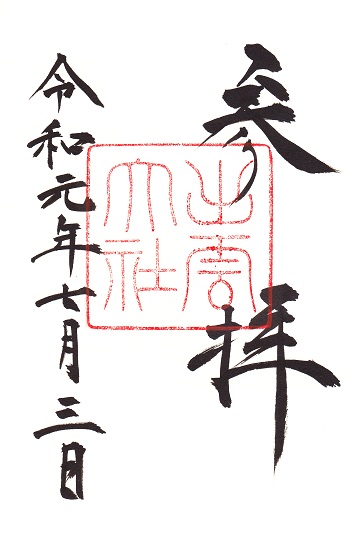 参拝
出雲大社
令和元年七月三日